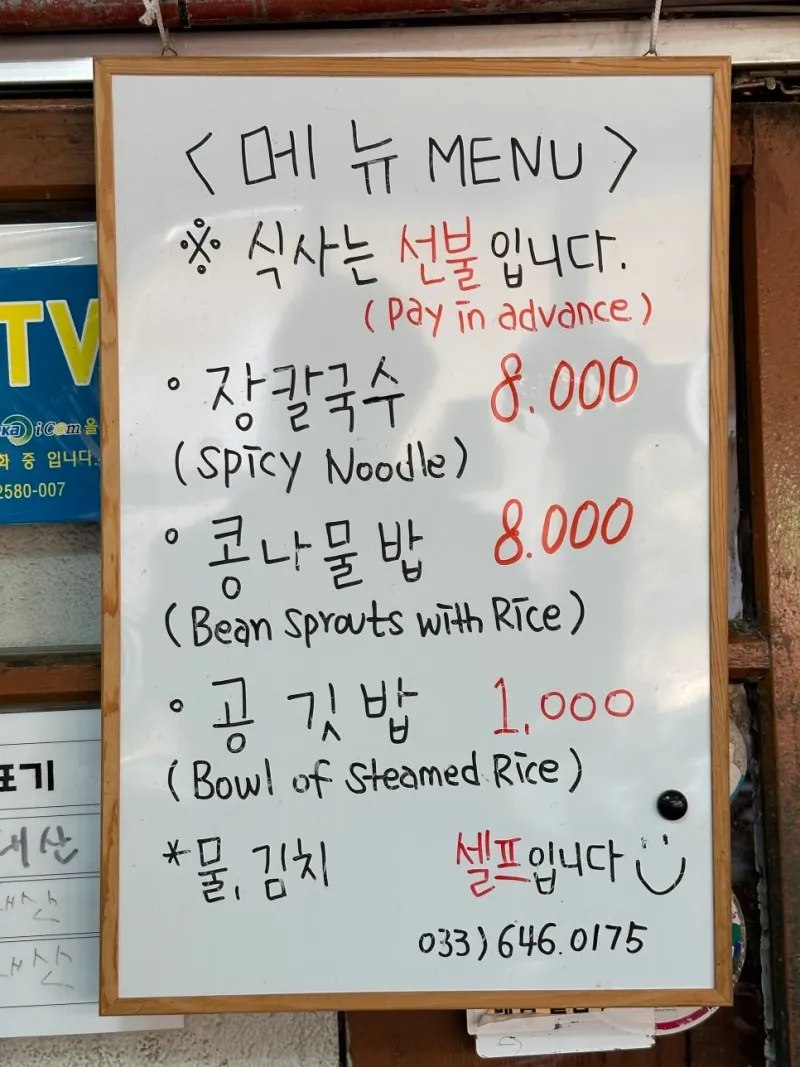 < 메뉴 MENU >
※ 식사는 선불입니다.
(Pay in advance)
• 장칼국수 8.000
(Spicy Noodle)
• 콩나물밥 8.000
(Bean Sprouts with Rice)
• 공깃밥 1,000
(Bowl of Steamed Rice)
*물, 김치 셀프입니다
033)646.0175
TV
i Com을
화 중 입니다.
2580-007
표기
내산